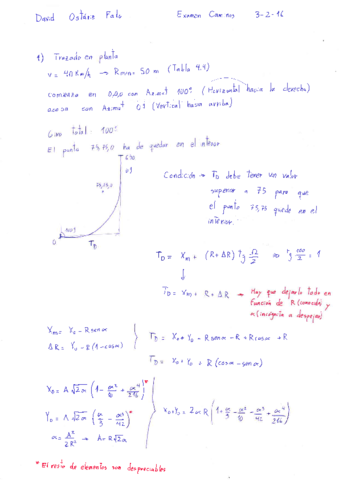 David Ostáriz Falo Examen Caminos 3-2-16
1) Trazado en planta
v = 40 Km/h → Rmin = 50 m (Tabla 4.4)
comienza en 0,0,0 con Azimut 100g (Horizontal hacia la derecha)
acaba con Azimut 0g (Vertical hacia arriba)
Giro total: 100g
El punto 75,75,0 ha de quedar en el interior
Condición → TD debe tener un valor
superior a 75 para que
el punto 75,75 quede en el
interior.
75,75,0
0
100g
TD
TD = Xm + (R + ΔR) Tg Ω/2 ⇒ Tg 100/2 = 1
↓
TD = Xm + R + ΔR → Hay que dejarlo todo en
función de R (conocido) y
α (incógnita a despejar)
Xm = X0 - R sen α
ΔR = Y0 - R (1 - cos α)
TD = X0 + Y0 - R sen α - R + R cos α + R
TD = X0 + Y0 + R (cos α - sen α)
X0 = A √2α (1 - α²/10 + α⁴/216)*
Y0 = A √2α (α/3 - α³/42)*
X0 + Y0 = 2α R (1 + α/3 - α²/10 - α³/42 + α⁴/216)
α = A²/2R² → A = R √2α
* El resto de elementos son despreciables